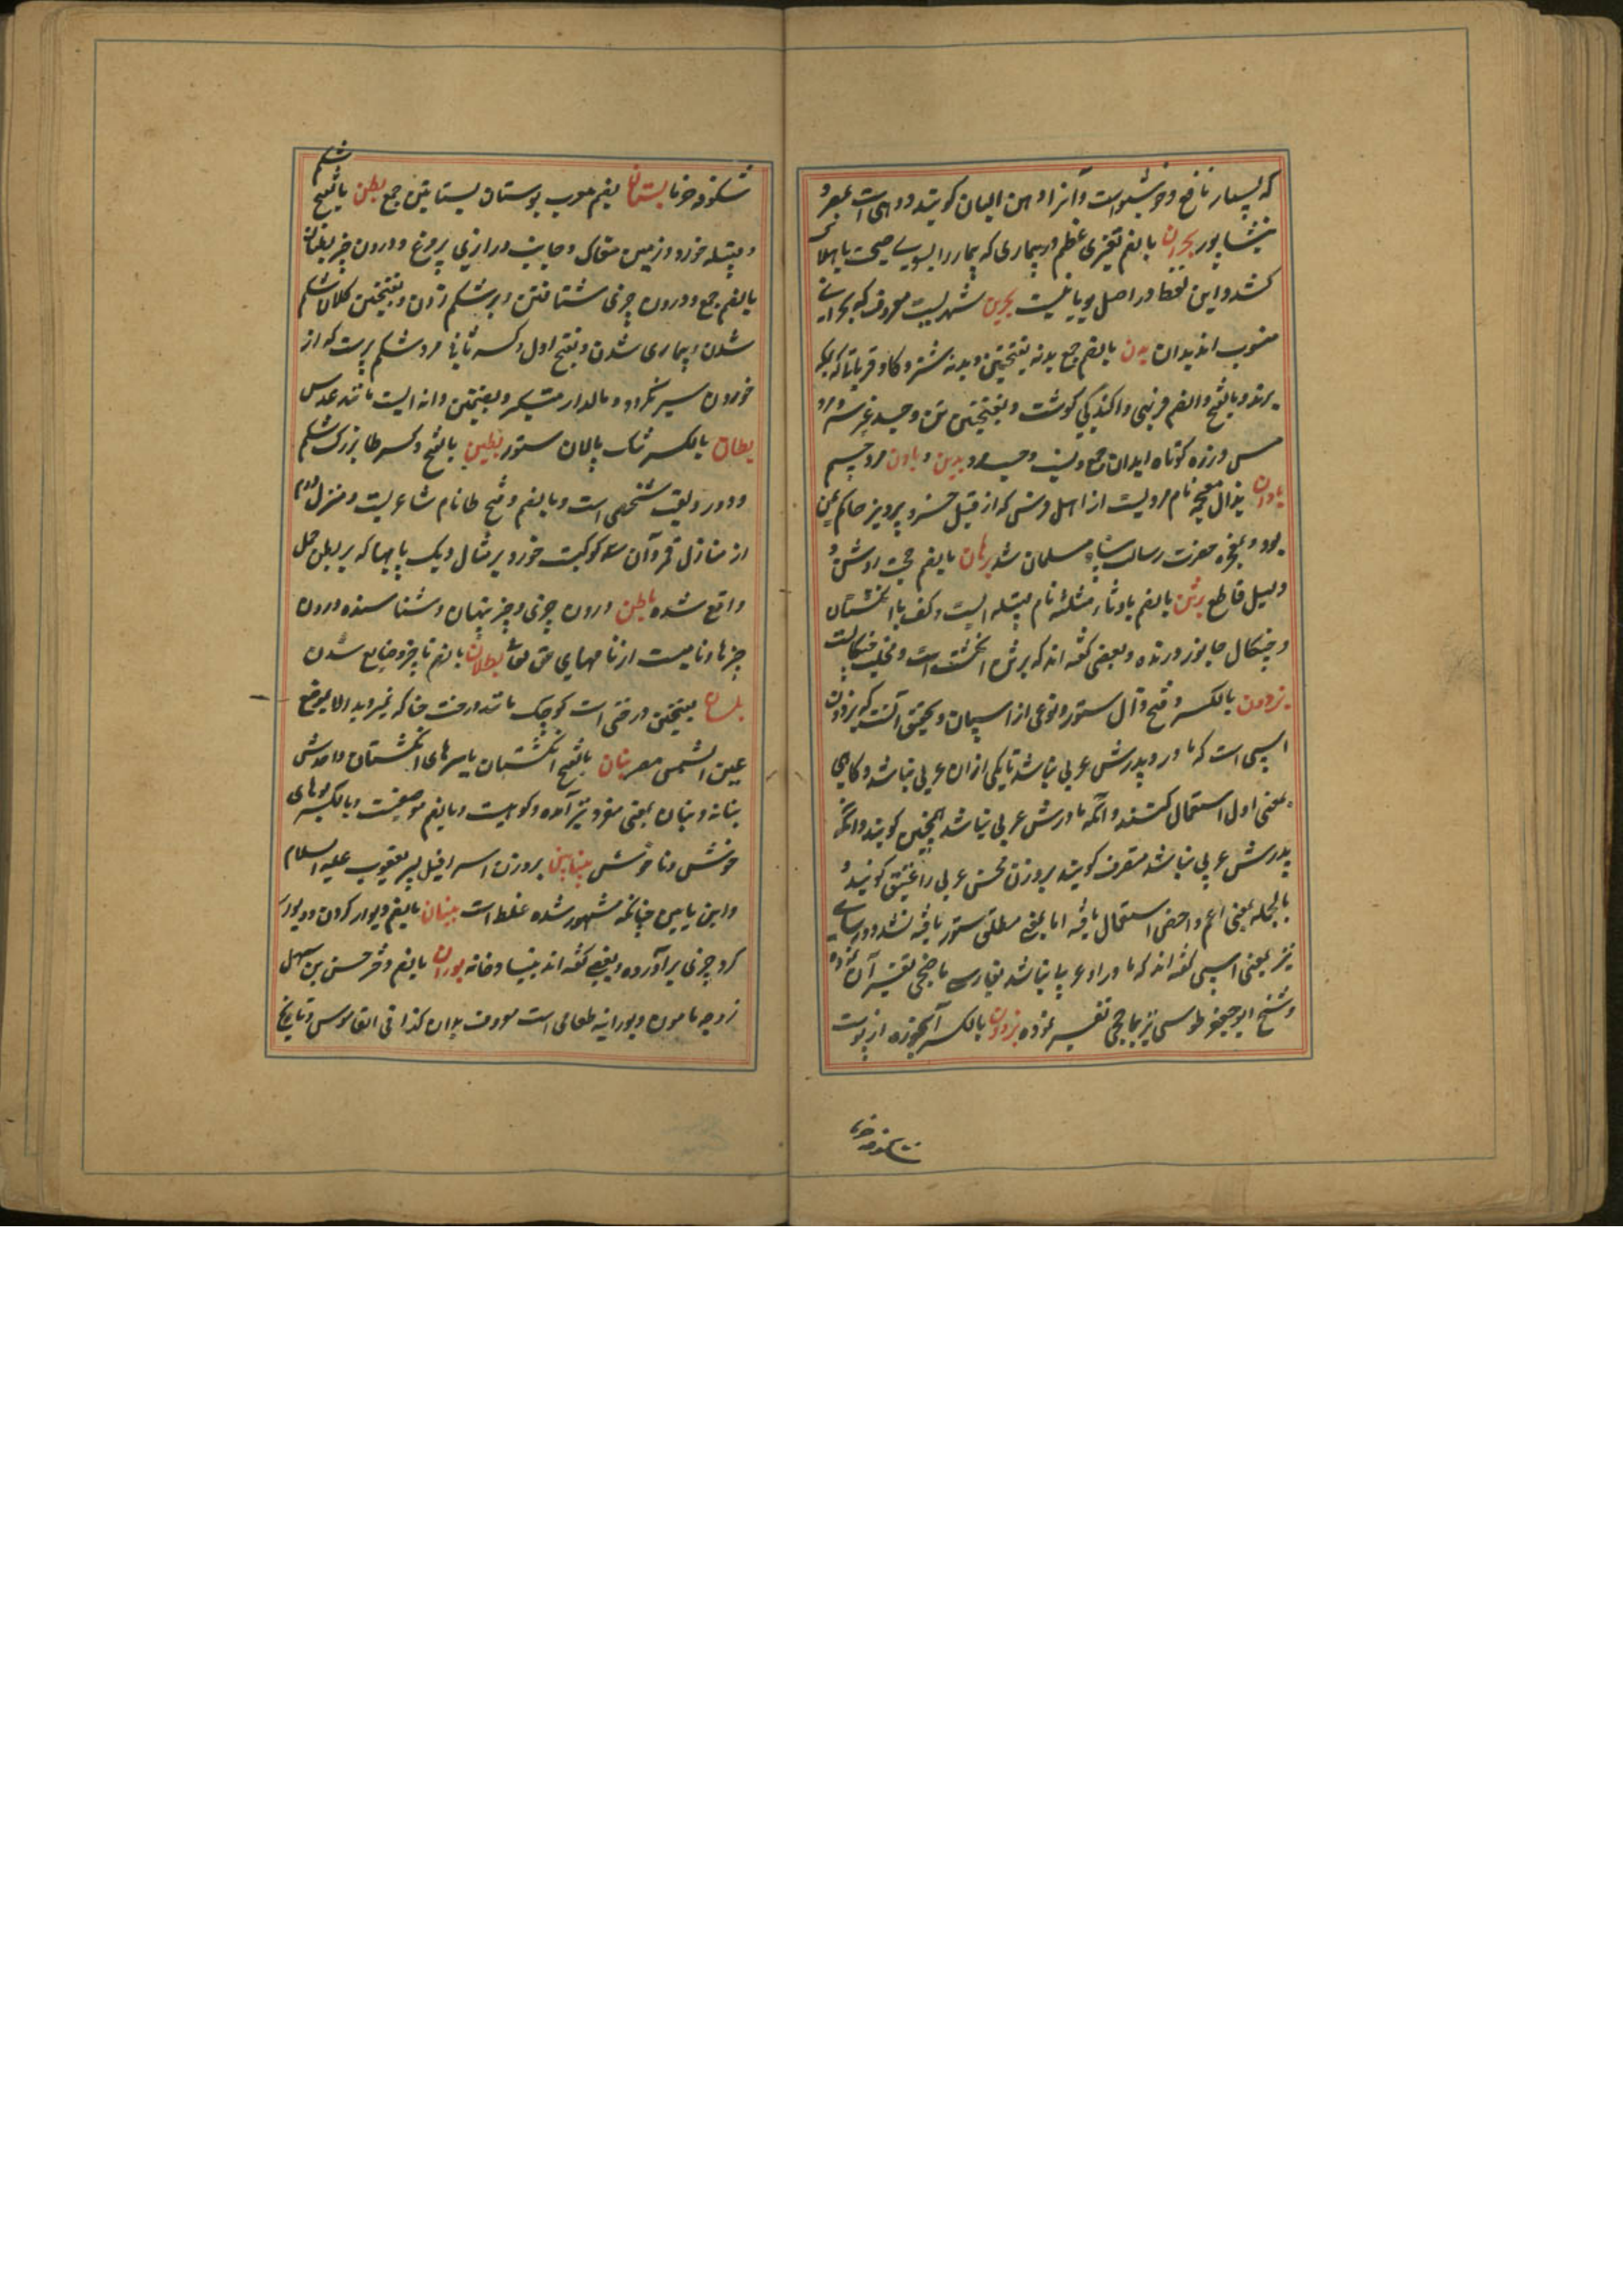 که بسیار نافع و خوشبو است و آنرا دهن البان گویند و دهی است بمصر و
نیشاپور بحران بالضم تغیری عظیم در بیماری که بیمار را بسوی صحت یا هلاک
کشد و این لفظ در اصل یونانیست بحرین شهریست معروف که بحرانی
منسوب اند بدان بدن بالضم جمع بدنه بفتحتین و بدنه شتر و گاو قربانی که بمکه
برند و بالفتح والضم فربهی و آکندگی گوشت و بفتحتین تن و جسد غیر سر و مرد
مسن و زره کوتاه ابدان جمع و نسب و حسب مرد بدین و بادن مرد جسیم
باذان بذال معجمه نام مردیست از اهل فرس که از قبل خسرو پرویز حاکم یمن
بود و بمعجزه حضرت رسالت پناه مسلمان شد برهان بالضم حجت روشن و
دلیل قاطع برثن بالضم با و ثاء مثلثه نام قبیله ایست و کف با انگشتان
و چنگال جانور درنده و بعضی گفته اند که برثن انگشت است و مخلب چنگالست
برذون بالکسر و فتح ذال ستور و نوعی از اسپان و تحقیق آنست که برذون
اسپی است که مادر و پدرش عربی نباشد تا یکی ازان عربی نباشد و گاهی
بمعنی اول استعمال کنند و آنکه مادرش عربی نباشد هجین گویند و آنکه
پدرش عربی نباشد مقرف گویند بروزن محسن عربی را عتیق گویند و
بالجمله بمعنی اعم و اخص استعمال یافته اما بمعنی مطلق ستور یافته نشد و در سامی
نیز بمعنی اسپی گفته اند که مادر او عربی نباشد بپارسی تفسیر آن نموده
و شیخ ابو جعفر طوسی نیز تفسیر نموده بالکسر آبخوره از پوست
شکوفه خرما
شکوفه خرما بستان بضم معرب بوستان بساتین جمع بطن بالفتح شکم
و قبیله خورد و زمین مغاک و جانب درازی پر مرغ و درون چیز بطنان
بالضم جمع و درون چیزی شتافتن و بر شکم زدن و بفتحتین کلان شکم
شدن و بیماری شدن و بفتح اول و کسر ثانی مرد شکم پرست که از
خوردن سیر نگردد و مالدار متکبر و بضمتین دانه ایست مانند عدس
بطان بالکسر تنگ پالان ستور بطین بالفتح و کسر طا بزرگ شکم
و دور و لقب شخصی است و بالضم و فتح طا نام شاعریست و منزل دوم
از منازل قمر و آن سه کوکبست خورد بر مثال دیک پایها که بر بطن حمل
واقع شده باطن درون چیزی و چیز پنهان و شناسنده درون
چیزها و نامیست از نامهای حق تعالی بطلان بالضم ناچیز و ضایع شدن
بلسان بفتحتین درختی است کوچک مانند درخت حنا که نمیروید الا بموضع
عین الشمس مصر بنان بالفتح انگشتان یا سرهای انگشتان واحدش
بنانه و بنان بمعنی مفرد نیز آمده و کوهیست و بالضم موضعیست و بالکسر بوهای
خوش و ناخوش بنیامین بروزن اسرافیل پسر یعقوب علیه السلام
و ابن یامین چنانکه مشهور شده غلط است بنیان بالضم دیوار کردن و دیوار
گرد چیزی برآورده و بعضی گفته اند بنیاد خانه بوران بالضم دختر حسن بن سهل
زوجه مامون و بورانیه طعامی است معروف بدان کذا فی القاموس و تاریخ